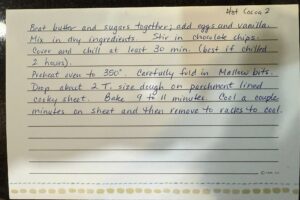 Hot Cocoa 2
Beat butter and sugars together; add eggs and vanilla.
Mix in dry ingredients. Stir in chocolate chips.
Cover and chill at least 30 min. (best if chilled
2 hours).
Preheat oven to 350°. Carefully fold in Mallow bits.
Drop about 2 T. size dough on parchment lined
cooky sheet. Bake 9 to 11 minutes. Cool a couple
minutes on sheet and then remove to racks to cool.